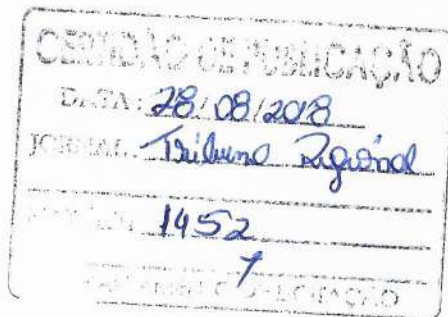 CERTIDÃO DE PUBLICAÇÃO
DATA: 28/08/2018
JORNAL: Tribuna Regional
1452
7